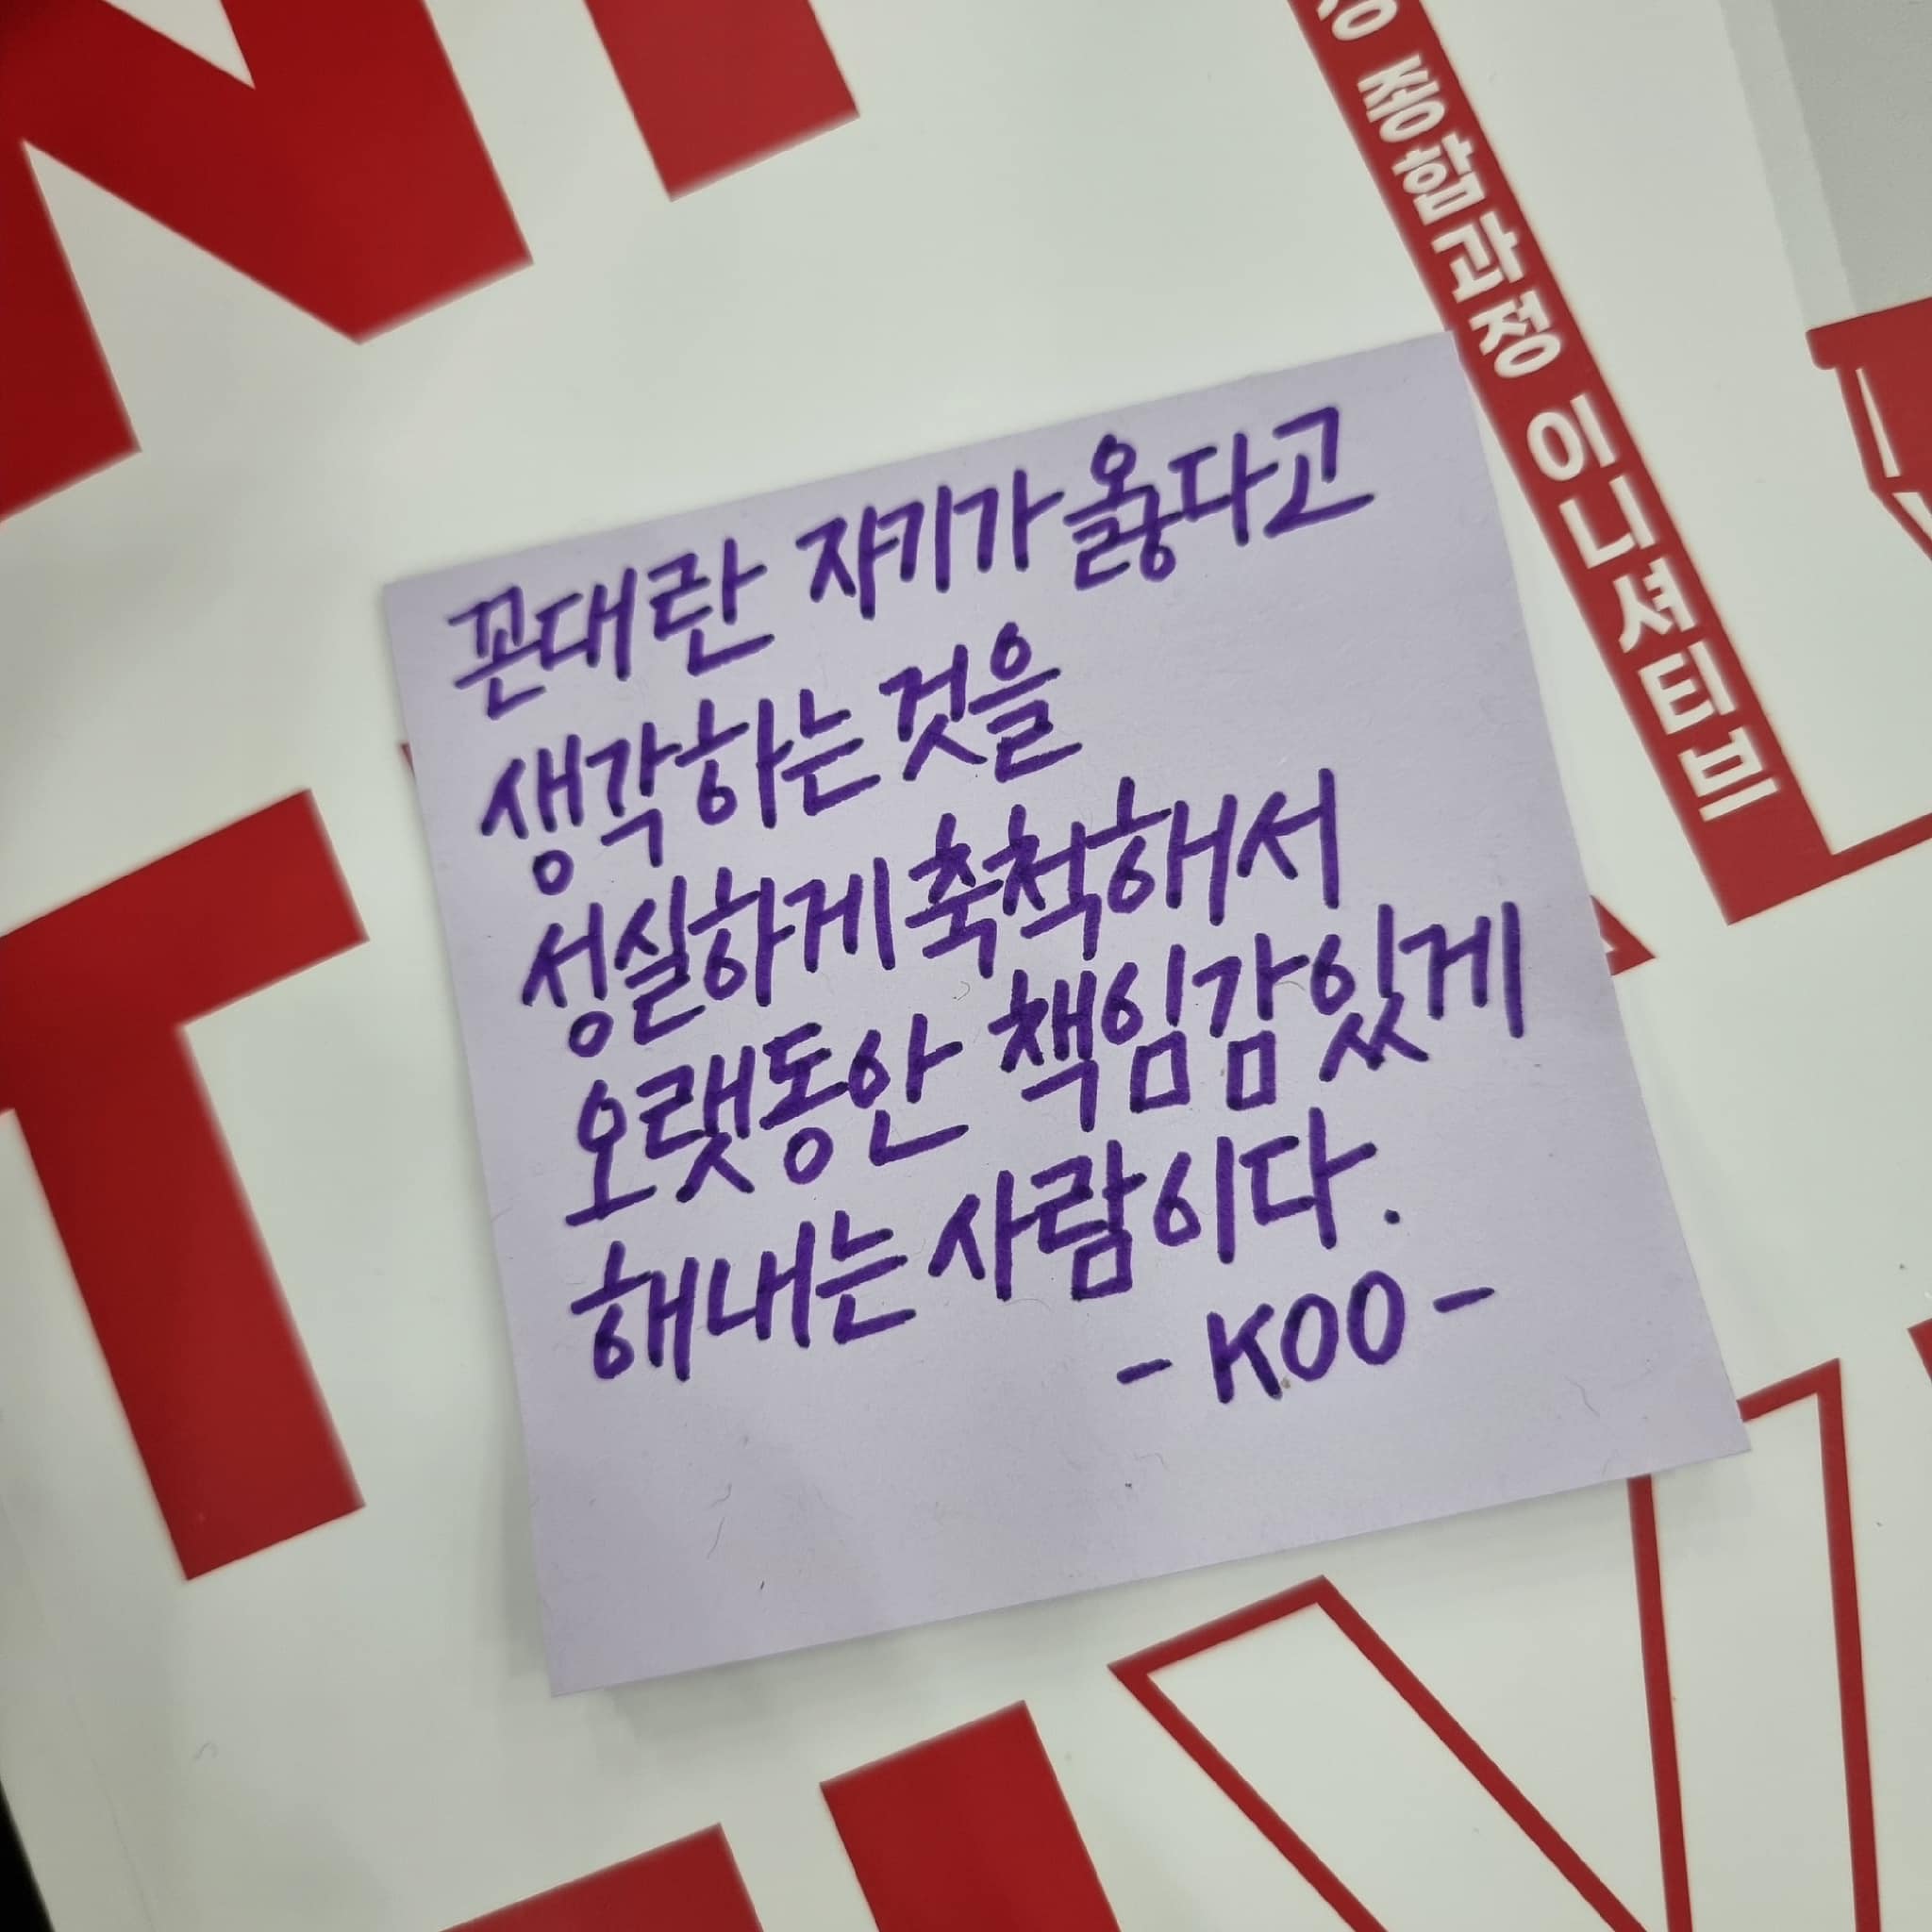 종합과정 이니셔티브
꼰대란 자기가 옳다고
생각하는 것을
성실하게 축척해서
오랫동안 책임감있게
해내는 사람이다.
- KOO -